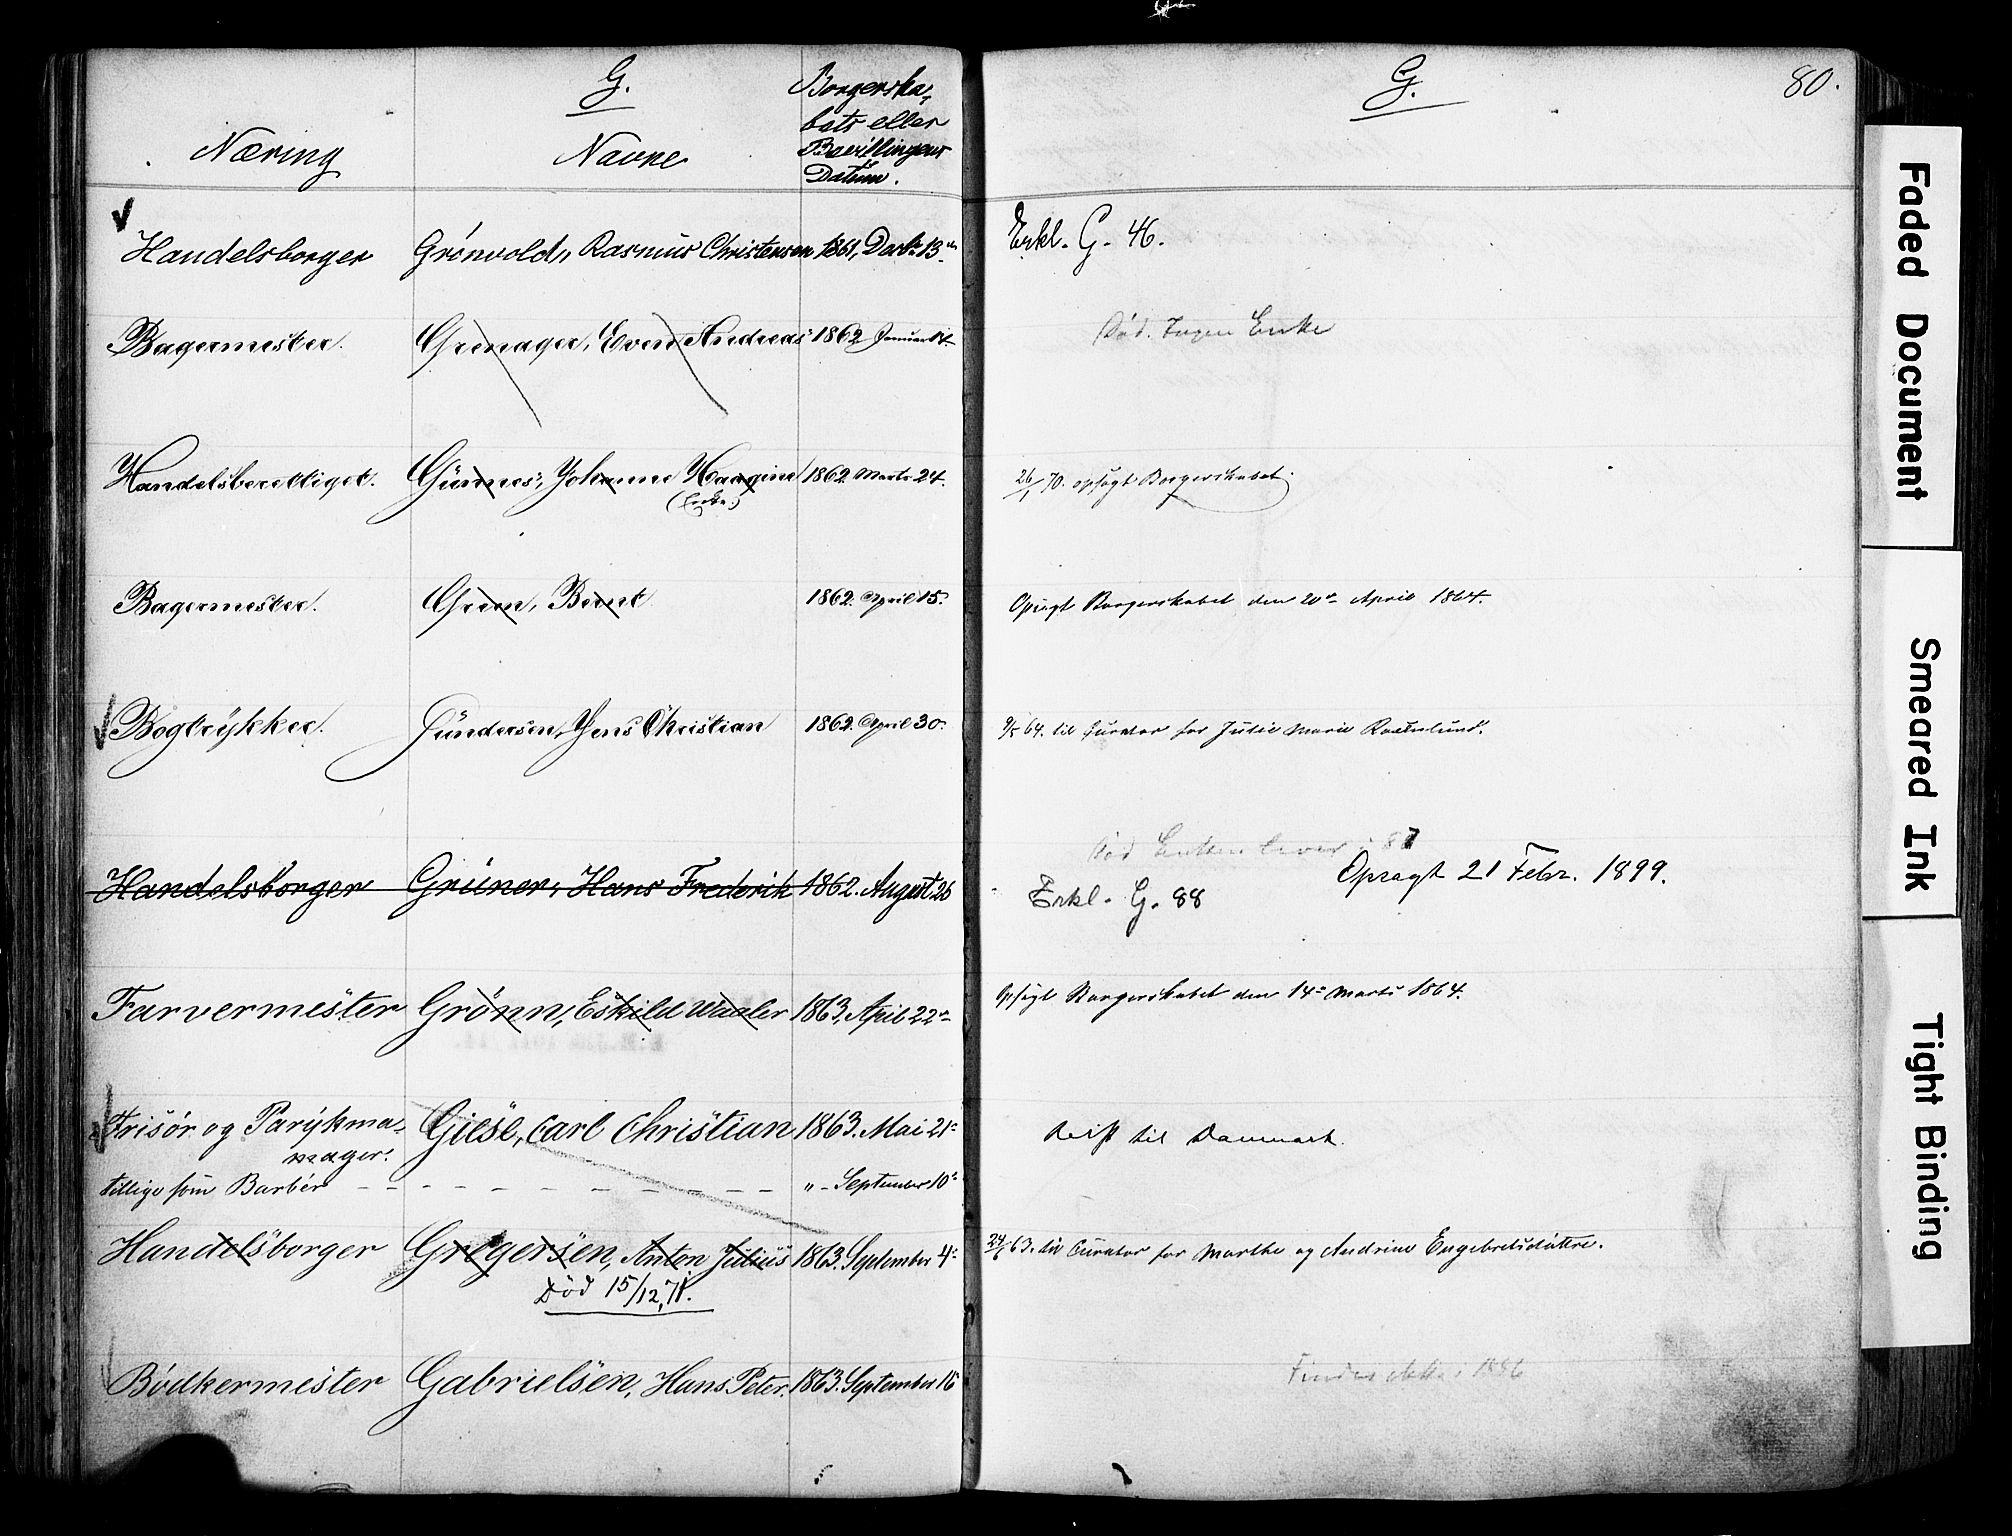 G.
Næring
Navne
Borgerska-
bets eller
Bevillingens
Datum.
G.
80.
Handelsborger Grönvold, Rasmus Christensen 1861, Decbr 13.
Erkl. G. 46.
Bagermester. Grenager, Even Andreas 1862 Januar
Død. Ingen Enke
Handelsberettiget. Gürnes, Johanne Haagine 1862 Marts 24.
(Enke.)
26/1 70. opsagt Borgerskabet.
Bagermester. Green, Bernt 1862. April 15.
Opsagt Borgerskabet den 20de April 1864.
Bogtrykker. Gundersen, Jens Christian 1862. April 30.
9/5 64. til Curator for Julie Marie Rosenlund.
Død Enken lever i 87
Handelsborger Grüner, Hans Frederik 1862. August 26
Erkl. G. 88
Opsagt 21 Febr. 1899.
Farvermester Grönn, Eskild Waaler 1863, April 22de
Opsagt Borgerskabet den 14de Marts 1864.
Frisör og Parykma-
mager. Giese, Carl Christian 1863. Mai 21
Reist til Danmark.
tillige som Barber - - - - - - - - - - - - " - September 10
Handelsborger Gregersen, Anton Julius 1863. September 4
Død 15/12, 71.
24/6 63. til Curator for Marthe og Andrine Engebretsdattre.
Bödkermester Gabrielsen, Hans Peter. 1863. September 16
Findes ikke i 1886
Faded Document
Smeared Ink
Tight Binding